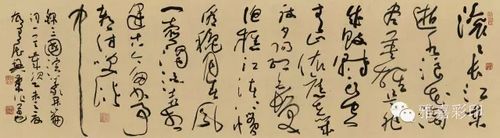 滚滚长江东
逝水浪花淘
尽英雄是非
成败转头空
青山依旧在
几度夕阳红白
发渔樵江渚上
惯看秋月春风
一壶浊酒喜相
逢古今多少事
都付笑谈
中
录三国演义开篇
词一首
彩印